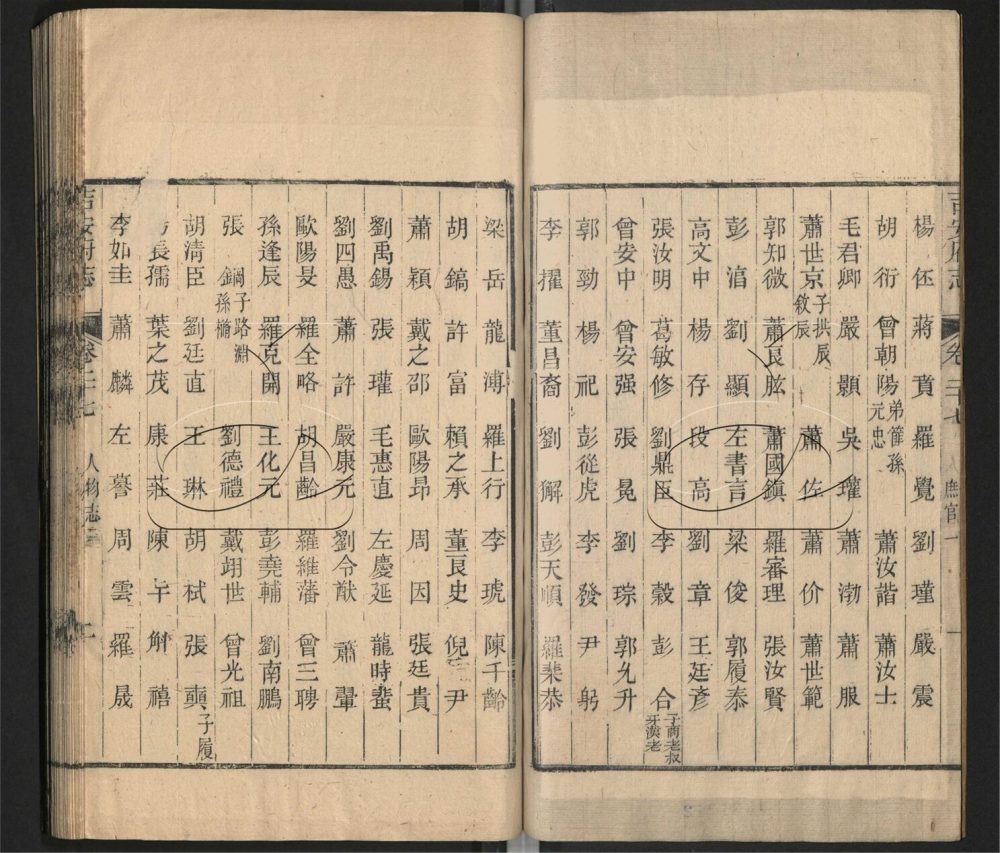 楊伾 蔣賁 羅覺 劉瑾 嚴震
胡衍 曾朝陽 弟篚孫元忠 蕭汝諧 蕭汝士
毛君卿 嚴顥 吳瓘 蕭渤 蕭服
蕭世京 子拱辰敘辰 蕭佐 蕭价 蕭世範
郭知微 蕭良肱 蕭國鎮 羅審理 張汝賢
彭滔 劉顯 左書言 梁俊 郭履泰
高文中 楊存 段高 劉章 王廷彥
張汝明 葛敏修 劉鼎臣 李穀 彭合 子商老叔牙漢老
曾安中 曾安强 張晃 劉琮 郭允升
郭勁 楊祀 彭從虎 李發 尹躬
李擢 董昌裔 劉獬 彭天順 羅棐恭
吉安府志 卷二十七 庶官一 一
梁岳 龍溥 羅上行 李琥 陳千齡
胡鎬 許富 賴之承 董良史 倪尹
蕭穎 戴之邵 歐陽昂 周因 張廷貴
劉禹錫 張瓘 毛惠直 左慶延 龍時蜚
劉四愚 蕭許 嚴康元 劉今猷 蕭翬
歐陽旻 羅全略 胡昌齡 羅維藩 曾三聘
孫逢辰 羅克開 王化元 彭堯輔 劉南鵬
張鋼 子路淵孫 劉德禮 戴翊世 曾光祖
胡清臣 劉廷直 王琳 胡栻 張奭 子履
長孺 葉之茂 康莊 陳午 解禧
李如圭 蕭麟 左譽 周雲 羅晟
吉安府志 卷二十七 人物志 二